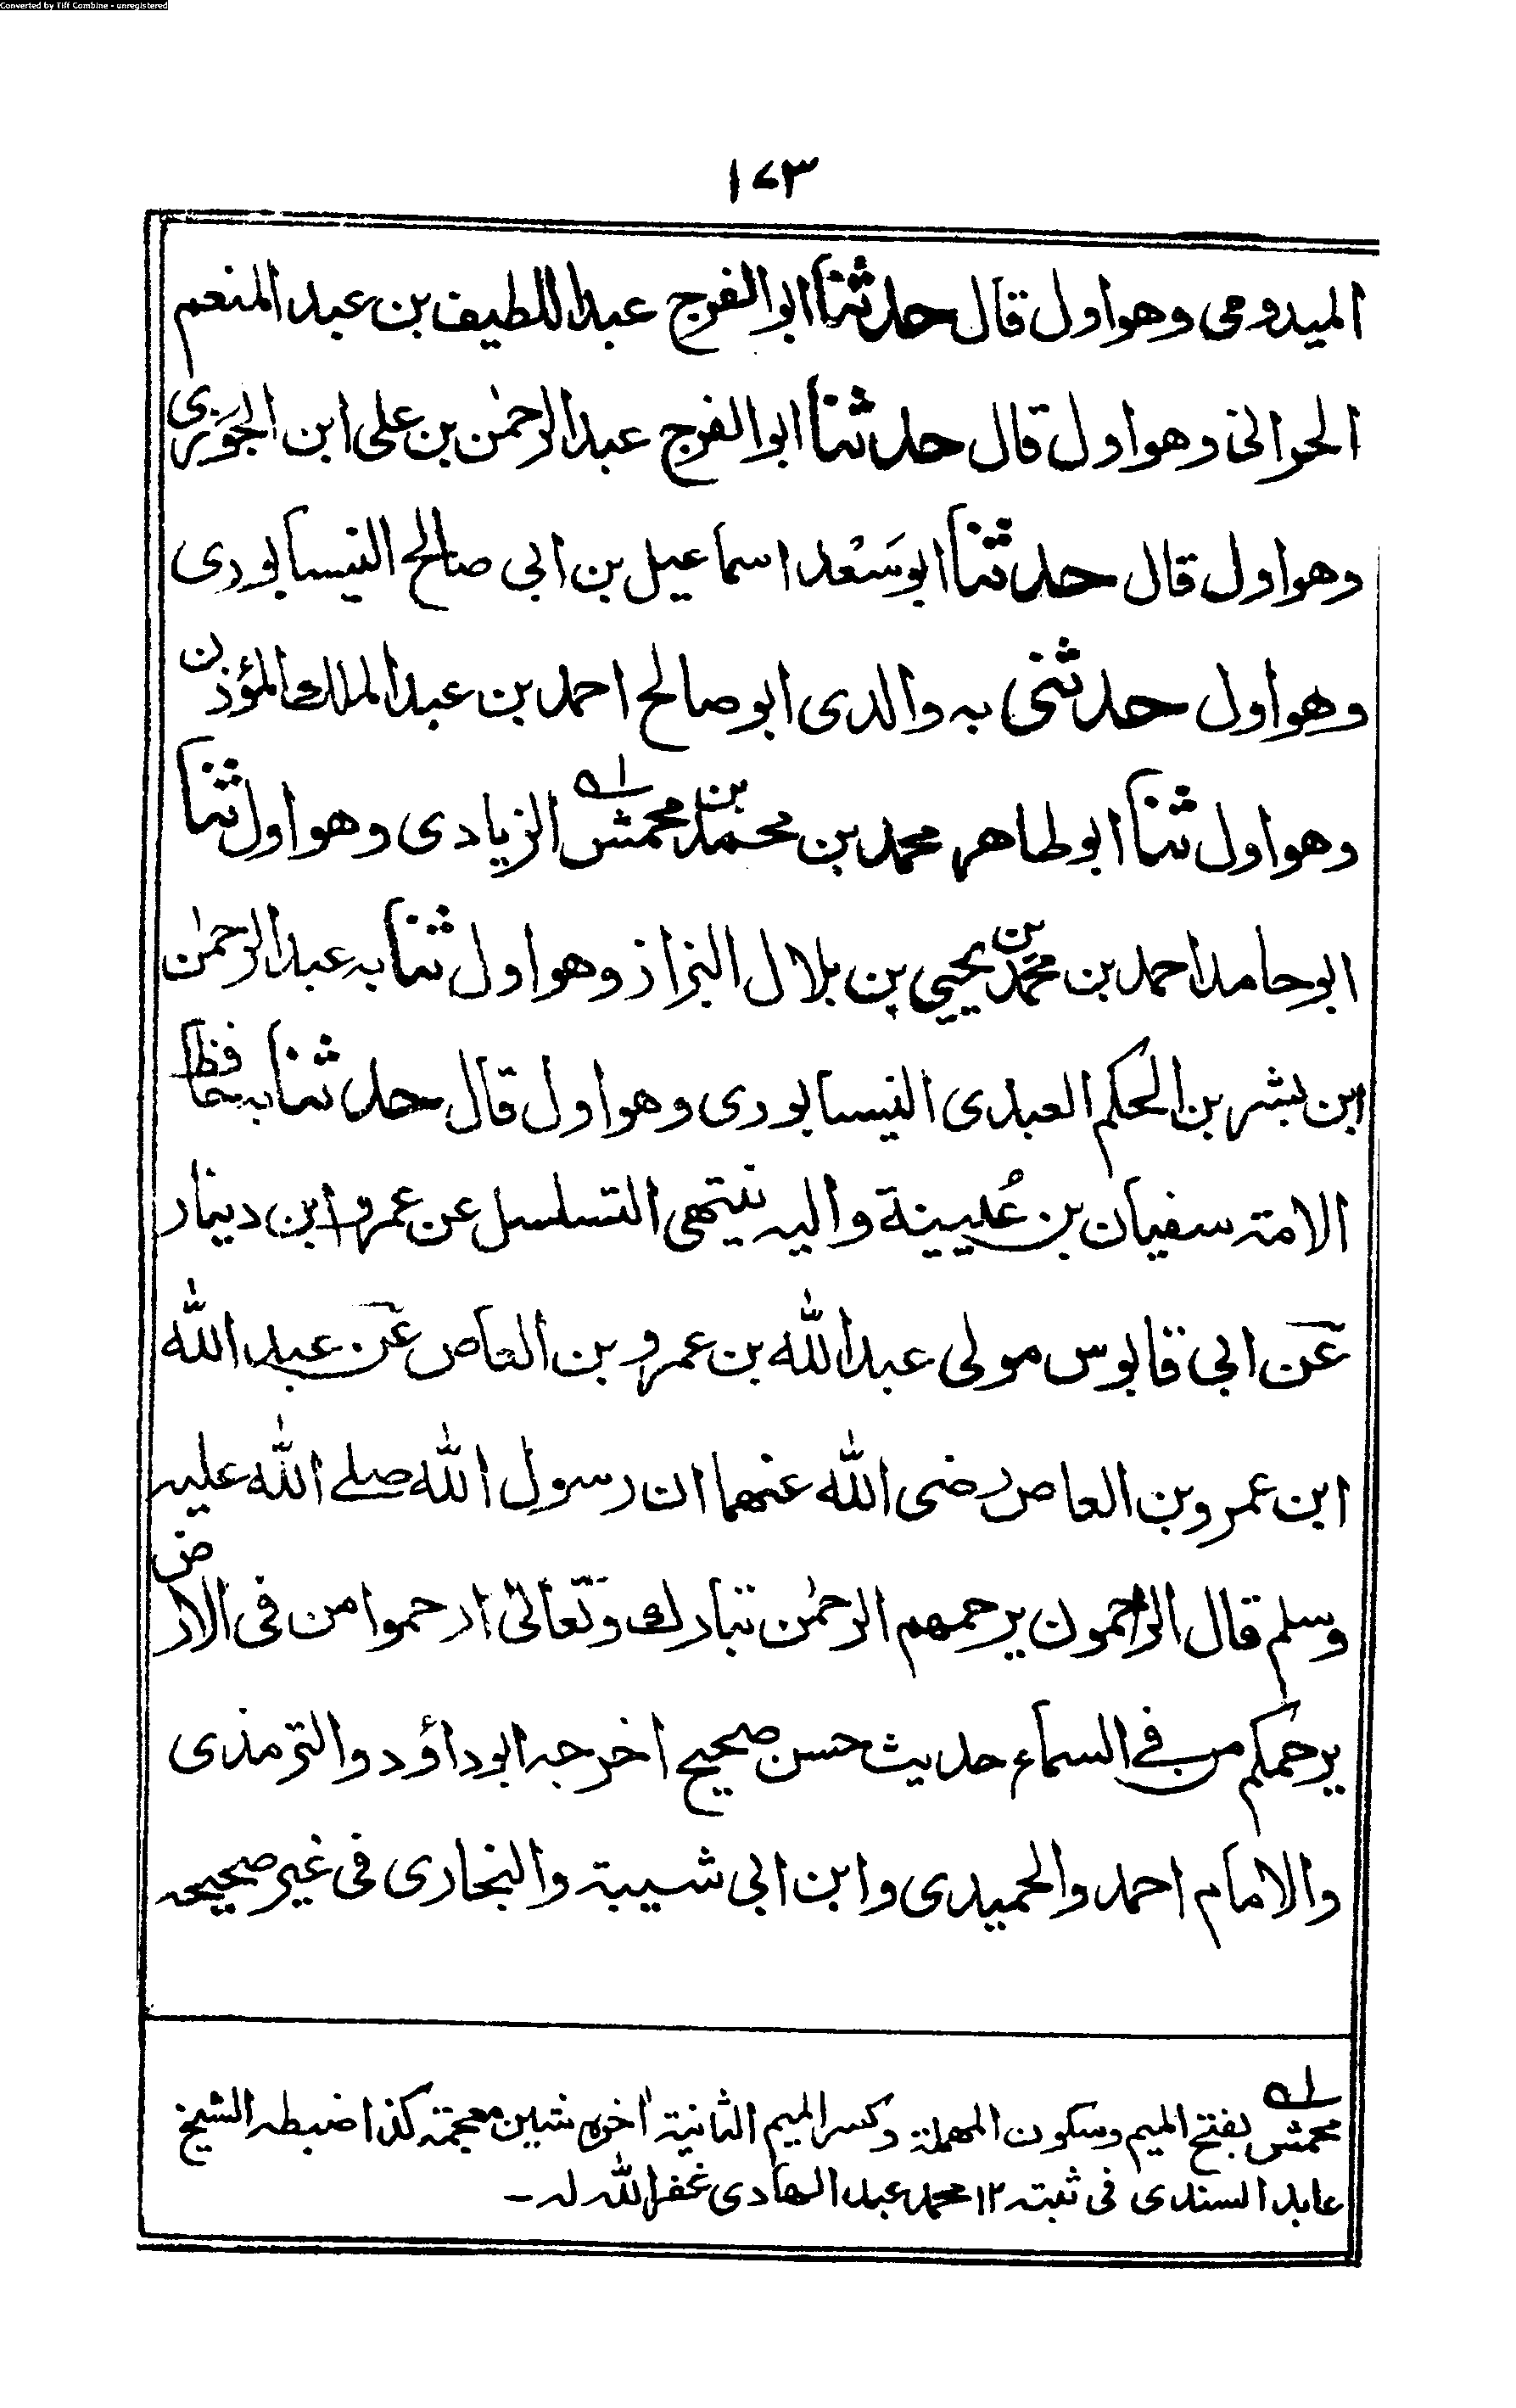 Converted by Tiff Combine - unregistered
١٧٣
الميدومى وهو اول قال حدثنا ابو الفرج عبد اللطيف بن عبد المنعم
الحرانى وهو اول قال حدثنا ابو الفرج عبد الرحمٰن بن على ابن الجوزى
وهو اول قال حدثنا ابو سَعْد اسماعيل بن ابى صالح النيسابورى
وهو اول حدثنى به والدى ابو صالح احمد بن عبد الملك المؤذن
وهو اول ثنا ابو طاهر محمد بن محمد بن محمش الزيادى وهو اول ثنا
ابو حامد احمد بن محمد بن يحيى بن بلال البزاز وهو اول ثنا به عبد الرحمٰن
ابن بشر بن الحكم العبدى النيسابورى وهو اول قال حدثنا به حافظ
الامة سفيان بن عُيينة واليه ينتهى التسلسل عن عمرو ابن دينار
عن ابى قابوس مولى عبد الله بن عمرو بن العاص عن عبد الله
ابن عمرو بن العاص رضى الله عنهما ان رسول الله صلے الله عليه
وسلم قال الراحمون يرحمهم الرحمٰن تبارك وتعالىٰ ارحموا من فى الارض
يرحمكم من فے السماء حديث حسن صحيح اخرجه ابو داؤد والترمذى
والامام احمد والحميدى وابن ابى شيبة والبخارى فى غير صحيحه
لے محمش بفتح الميم وسكون المهملة وكسر الميم الثانية اٰخره شين معجمة كذا ضبطه الشيخ
عابد السندى فى ثبته ١٢ محمد عبد الهادى غفر الله له ـ